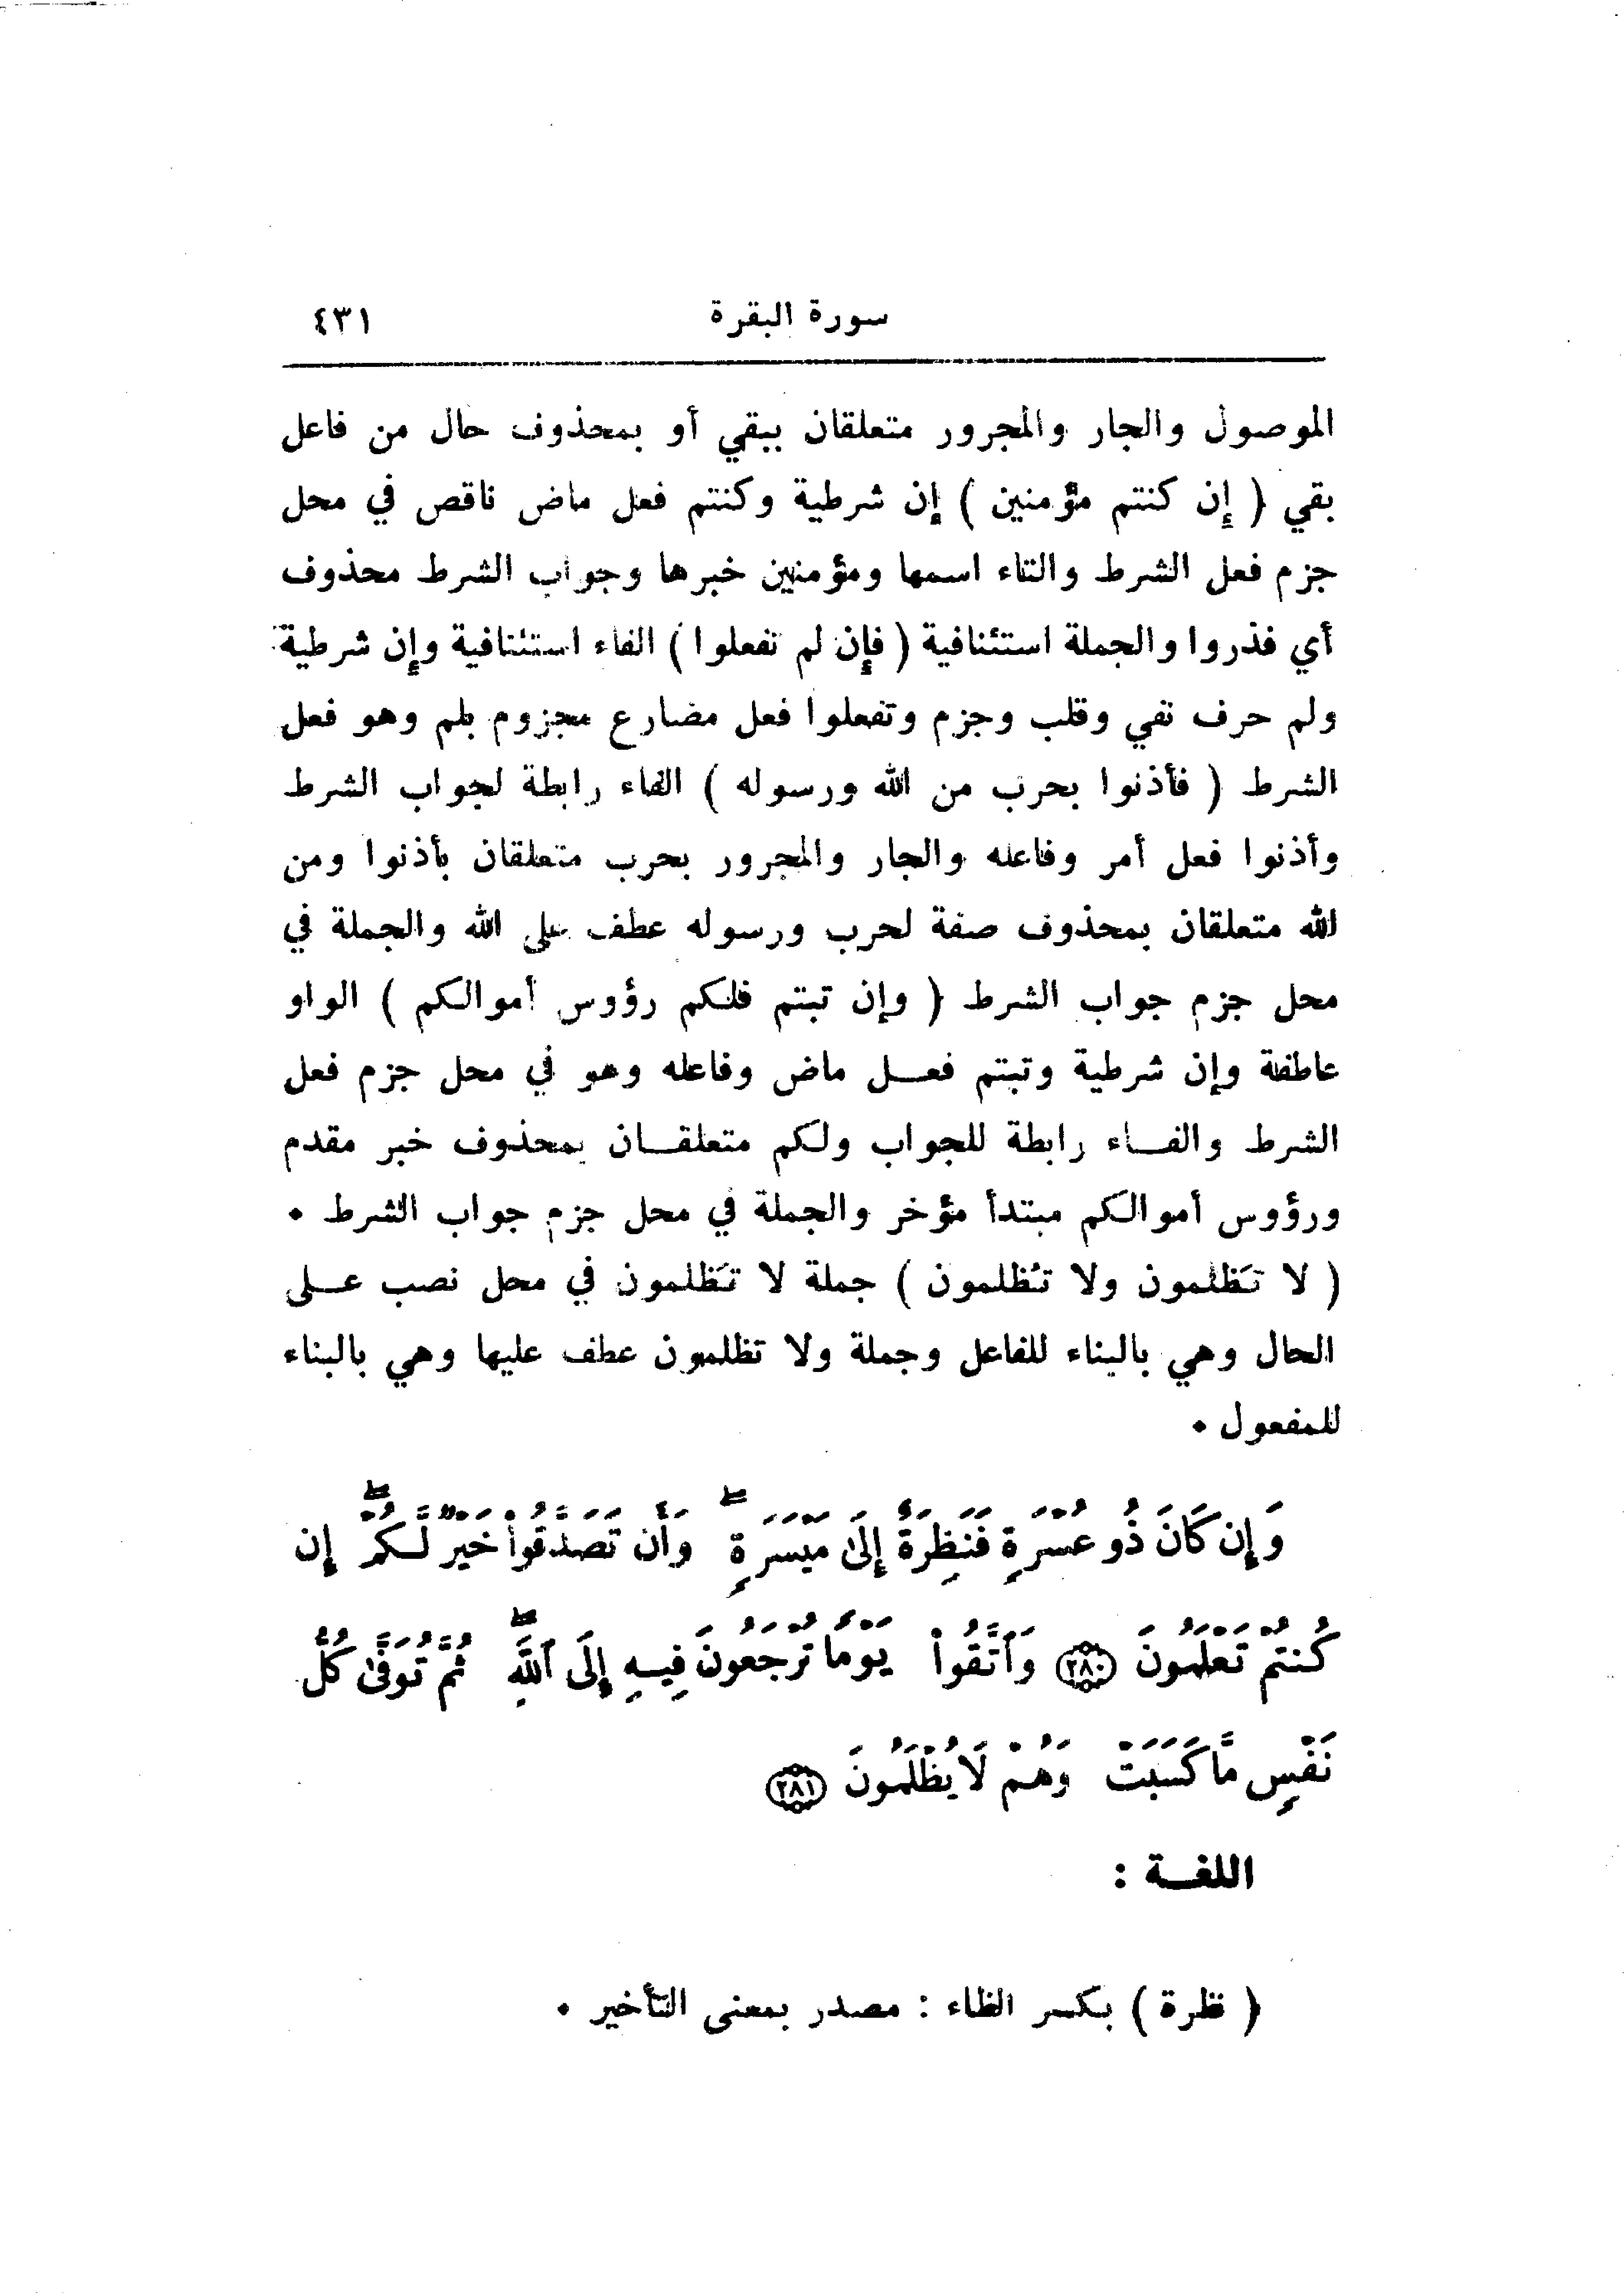 سورة البقرة ٤٣١
الموصول والجار والمجرور متعلقان ببقي أو بمحذوف حال من فاعل
بقي ( إن كنتم مؤمنين ) إن شرطية وكنتم فعل ماض ناقص في محل
جزم فعل الشرط والتاء اسمها ومؤمنين خبرها وجواب الشرط محذوف
أي فذروا والجملة استئنافية ( فإن لم تفعلوا ) الفاء استئنافية وإن شرطية
ولم حرف نفي وقلب وجزم وتفعلوا فعل مضارع مجزوم بلم وهو فعل
الشرط ( فأذنوا بحرب من الله ورسوله ) الفاء رابطة لجواب الشرط
وأذنوا فعل أمر وفاعله والجار والمجرور بحرب متعلقان بأذنوا ومن
الله متعلقان بمحذوف صفة لحرب ورسوله عطف على الله والجملة في
محل جزم جواب الشرط ( وإن تبتم فلكم رؤوس أموالكم ) الواو
عاطفة وإن شرطية وتبتم فعـــل ماض وفاعله وهو في محل جزم فعل
الشرط والفـــاء رابطة للجواب ولكم متعلقـــان بمحذوف خبر مقدم
ورؤوس أموالكم مبتدأ مؤخر والجملة في محل جزم جواب الشرط ٠
( لا تَظلمون ولا تُظلمون ) جملة لا تَظلمون في محل نصب عـــلى
الحال وهي بالبناء للفاعل وجملة ولا تظلمون عطف عليها وهي بالبناء
للمفعول ٠
وَإِن كَانَ ذُو عُسْرَةٍ فَنَظِرَةٌ إِلَىٰ مَيْسَرَةٍ ۖ وَأَن تَصَدَّقُواْ خَيْرٌ لَّكُمْ ۖ إِن
كُنتُمْ تَعْلَمُونَ ﴿٢٨٠﴾ وَٱتَّقُواْ يَوْمًا تُرْجَعُونَ فِيهِ إِلَى ٱللَّهِ ۖ ثُمَّ تُوَفَّىٰ كُلُّ
نَفْسٍ مَّا كَسَبَتْ وَهُمْ لَا يُظْلَمُونَ ﴿٢٨١﴾
اللغـــة :
( نظرة ) بكسر الظاء : مصدر بمعنى التأخير ٠